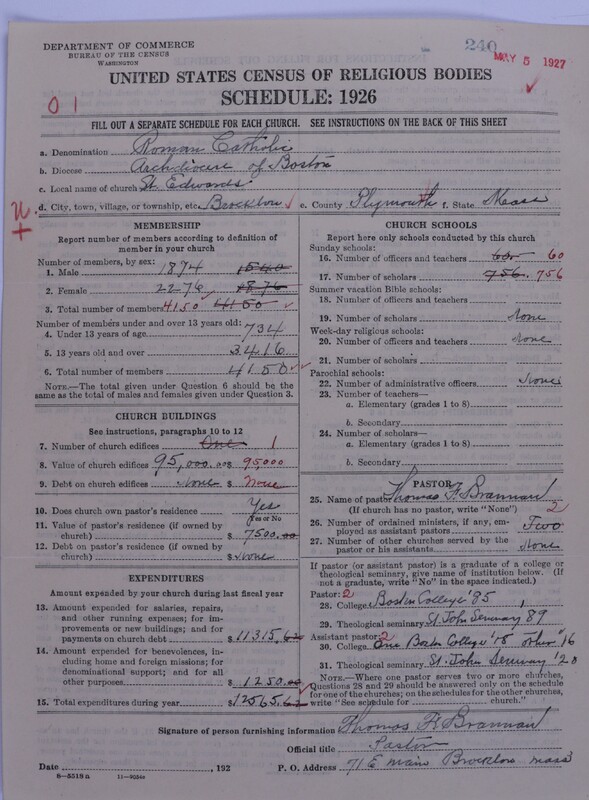 DEPARTMENT OF COMMERCE
BUREAU OF THE CENSUS
WASHINGTON
240
MAY 5 1927
UNITED STATES CENSUS OF RELIGIOUS BODIES
SCHEDULE: 1926
01
FILL OUT A SEPARATE SCHEDULE FOR EACH CHURCH. SEE INSTRUCTIONS ON THE BACK OF THIS SHEET
a. Denomination Roman Catholic
b. Diocese Archdiocese of Boston
c. Local name of church St. Edwards
d. City, town, village, or township, etc. Brockton e. County Plymouth f. State Mass
MEMBERSHIP
Report number of members according to definition of member in your church
Number of members, by sex:
1. Male 1874 1540
2. Female 2276 1876
3. Total number of members 4150 4150
Number of members under and over 13 years old:
4. Under 13 years of age 734
5. 13 years old and over 3416
6. Total number of members 4150
NOTE.—The total given under Question 6 should be the same as the total of males and females given under Question 3.
CHURCH BUILDINGS
See instructions, paragraphs 10 to 12
7. Number of church edifices One 1
8. Value of church edifices 95,000.00 $ 95,000
9. Debt on church edifices None $ None
10. Does church own pastor's residence? Yes
Yes or No
11. Value of pastor's residence (if owned by church) $ 7500.00
12. Debt on pastor's residence (if owned by church) $ None
EXPENDITURES
Amount expended by your church during last fiscal year
13. Amount expended for salaries, repairs, and other running expenses; for improvements or new buildings; and for payments on church debt $ 11315.62
14. Amount expended for benevolences, including home and foreign missions; for denominational support; and for all other purposes $ 1250.00
15. Total expenditures during year $ 12565.62
CHURCH SCHOOLS
Report here only schools conducted by this church
Sunday schools:
16. Number of officers and teachers 60. 60
17. Number of scholars 756. 756
Summer vacation Bible schools:
18. Number of officers and teachers
19. Number of scholars None
Week-day religious schools:
20. Number of officers and teachers None
21. Number of scholars
Parochial schools:
22. Number of administrative officers None
23. Number of teachers—
a. Elementary (grades 1 to 8)
b. Secondary
24. Number of scholars—
a. Elementary (grades 1 to 8)
b. Secondary
PASTOR
25. Name of pastor Thomas F. Brannan
(If church has no pastor, write "None")
26. Number of ordained ministers, if any, employed as assistant pastors Two 2
27. Number of other churches served by the pastor or his assistants None
If pastor (or assistant pastor) is a graduate of a college or theological seminary, give name of institution below. (If not a graduate, write "No" in the space indicated.)
Pastor: 2
28. College Boston College '85
29. Theological seminary St John Seminary 89
Assistant pastor: 2
30. College One Boston College '15 other '16
31. Theological seminary St. John Seminary '20
NOTE.—Where one pastor serves two or more churches, Questions 28 and 29 should be answered only on the schedule for one of the churches; on the schedules for the other churches, write "See schedule for church."
Signature of person furnishing information Thomas F. Brannan
Official title Pastor
Date , 192 P. O. Address 71 E main Brockton mass
8—5518a 11—9054